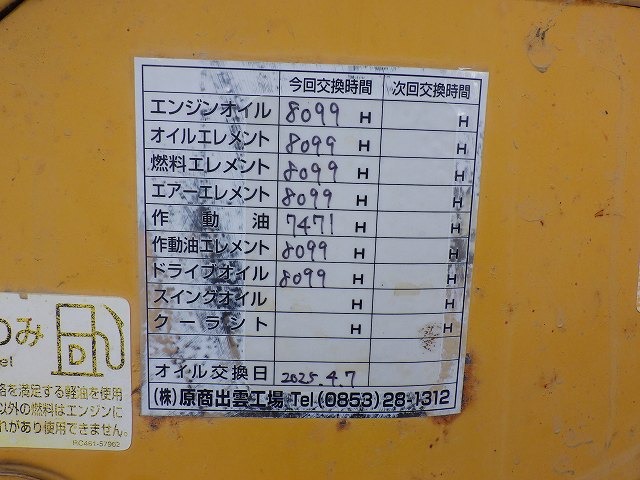 今回交換時間 次回交換時間
エンジンオイル 8099 H H
オイルエレメント 8099 H H
燃料エレメント 8099 H H
エアーエレメント 8099 H H
作動油 7471 H H
作動油エレメント 8099 H H
ドライブオイル 8099 H H
スイングオイル H H
クーラント H H
オイル交換日 2025.4.7
(株)原商出雲工場 Tel(0853)28-1312
のみ
D
を満足する軽油を使用
以外の燃料はエンジンに
れがあり使用できません。
RC461-57962